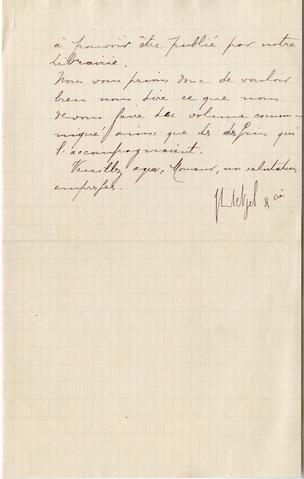 à pouvoir être publié par notre
librairie.
Nous vous prions donc de vouloir
bien nous dire ce que nous
devons faire du volume commu-
niqué ainsi que des dessins qui
l'accompagnaient.
Veuillez agréer, Monsieur, nos salutations
empressées.
J Hetzel & Cie